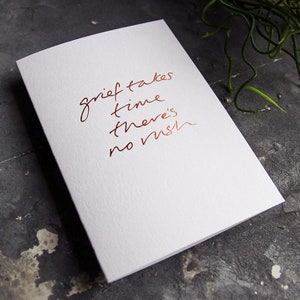 grief takes
time
there's
no rush